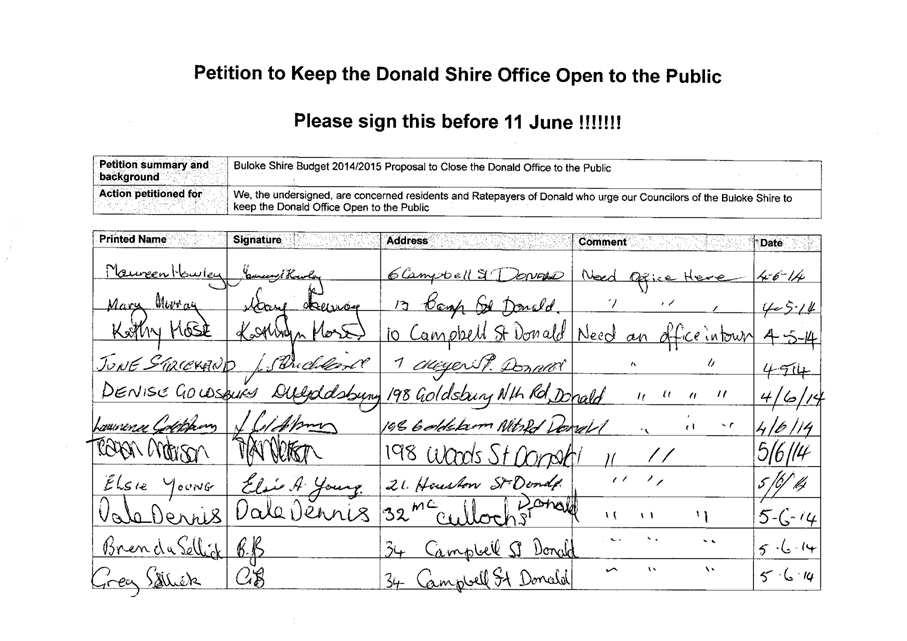 Petition to Keep the Donald Shire Office Open to the Public
Please sign this before 11 June !!!!!!!
Petition summary and background
Buloke Shire Budget 2014/2015 Proposal to Close the Donald Office to the Public
Action petitioned for
We, the undersigned, are concerned residents and Ratepayers of Donald who urge our Councilors of the Buloke Shire to
keep the Donald Office Open to the Public
Printed Name Signature Address Comment Date
Maureen Howley 6 Campbell St DONALD Need Office Here 4-6-14
Mary Murray 13 Camp St Donald. " " " 4-5-14
Kathy HOSE Kathryn Hose 10 Campbell St Donald Need an office in town 4-5-14
JUNE STRICKLAND J. Strickland 7 St. Donald " " 4-5-14
DENISE GOLDSBURY D Goldsbury 198 Goldsbury Nth Rd, Donald " " " " 4/6/14
Laurence Goldsbury L Goldsbury 198 Goldsbury Nth Rd Donald " " " 4/6/14
Anderson 198 Woods St Donald " " 5/6/14
ELSIE YOUNG Elsie A. Young. 21. Houston St Donald " " 5/6/14
Dale Dennis Dale Dennis 32 McCulloch St Donald " " " 5-6-14
Brenda Sellick B.S 34 Campbell St Donald " " " 5.6.14
Greg Sellick GS 34 Campbell St Donald " " " 5.6.14